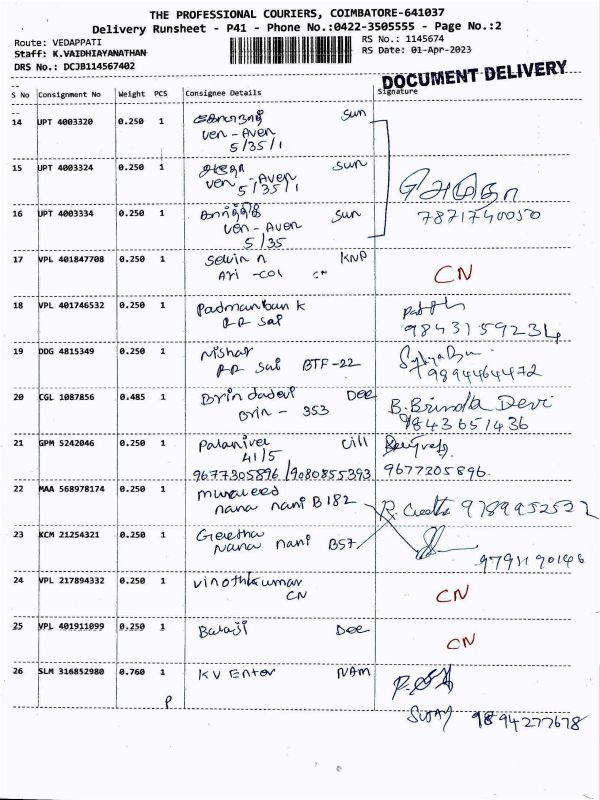 THE PROFESSIONAL COURIERS, COIMBATORE-641037
Delivery Runsheet - P41 - Phone No.:0422-3505555 - Page No.:2
Route: VEDAPPATI
RS No.: 1145674
Staff: K.VAIDHIAYANATHAN
RS Date: 01-Apr-2023
DRS No.: DCJB114567402
DOCUMENT DELIVERY
S No Consignment No Weight PCS Consignee Details Signature
14 UPT 4003320 0.250 1 Sun
ven - Aven
5/35/1
15 UPT 4003324 0.250 1 அமுதா Sun
ven - Aven
5/35/1
அமுதா
7871740050
16 UPT 4003334 0.250 1 கார்த்திக் Sun
ven - Aven
5/35
17 VPL 401847708 0.250 1 Selvin n KNP
Ari - COL CN
CN
18 VPL 401746532 0.250 1 Padmanban K
R R Sai
9843159234
19 DDG 4815349 0.250 1 Nishar
R R Sai BTF-22
9894464472
20 CGL 1087856 0.485 1 Brindadevi Dee B. Brindha Devi
Brin - 353 9843651436
21 GPM 5242046 0.250 1 Palanivel Cill
41/5
9677305896 / 9080855393 9677305896
22 MAA 568978174 0.250 1
nana nani B 182 R. Geetha 9789952522
23 KCM 21254321 0.250 1 Geetha
Nana nani B57
9791190146
24 VPL 217894332 0.250 1 Vinothkumar
CN CN
25 VPL 401911099 0.250 1 Balaji Dee CN
26 SLM 316852980 0.760 1 KV Enter NAM
P
9894277678